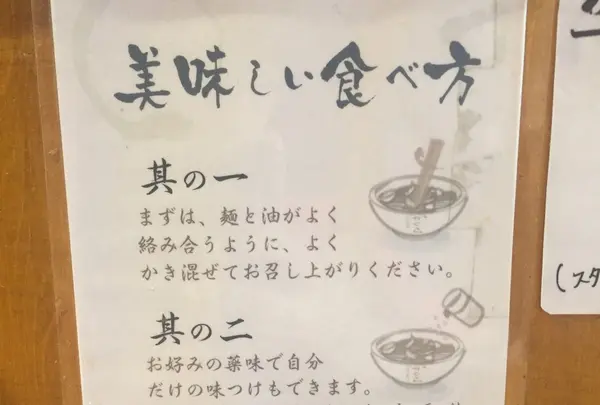 美味しい食べ方
其の一
まずは、麺と油がよく
絡み合うように、よく
かき混ぜてお召し上がりください。
其の二
お好みの薬味で自分
だけの味つけもできます。
(スタ